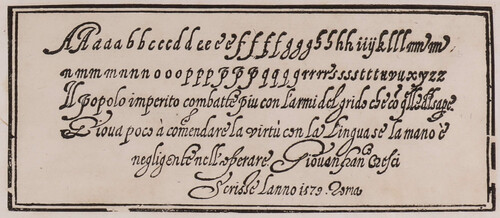 AAaaabbccddeeeffffggghhhiiijklllmmm
mmmmnnnooopppppqqqqrrrrssssttttuvuxyzz
Il popolo imperito combatte piu con l'armi del grido che cō q̄lle del sape.
Gioua poco à comendare la virtù con la lingua se la mano è
negligente nell'operare. Giouan fran. Cresci
Scrisse l'anno 1579. Roma